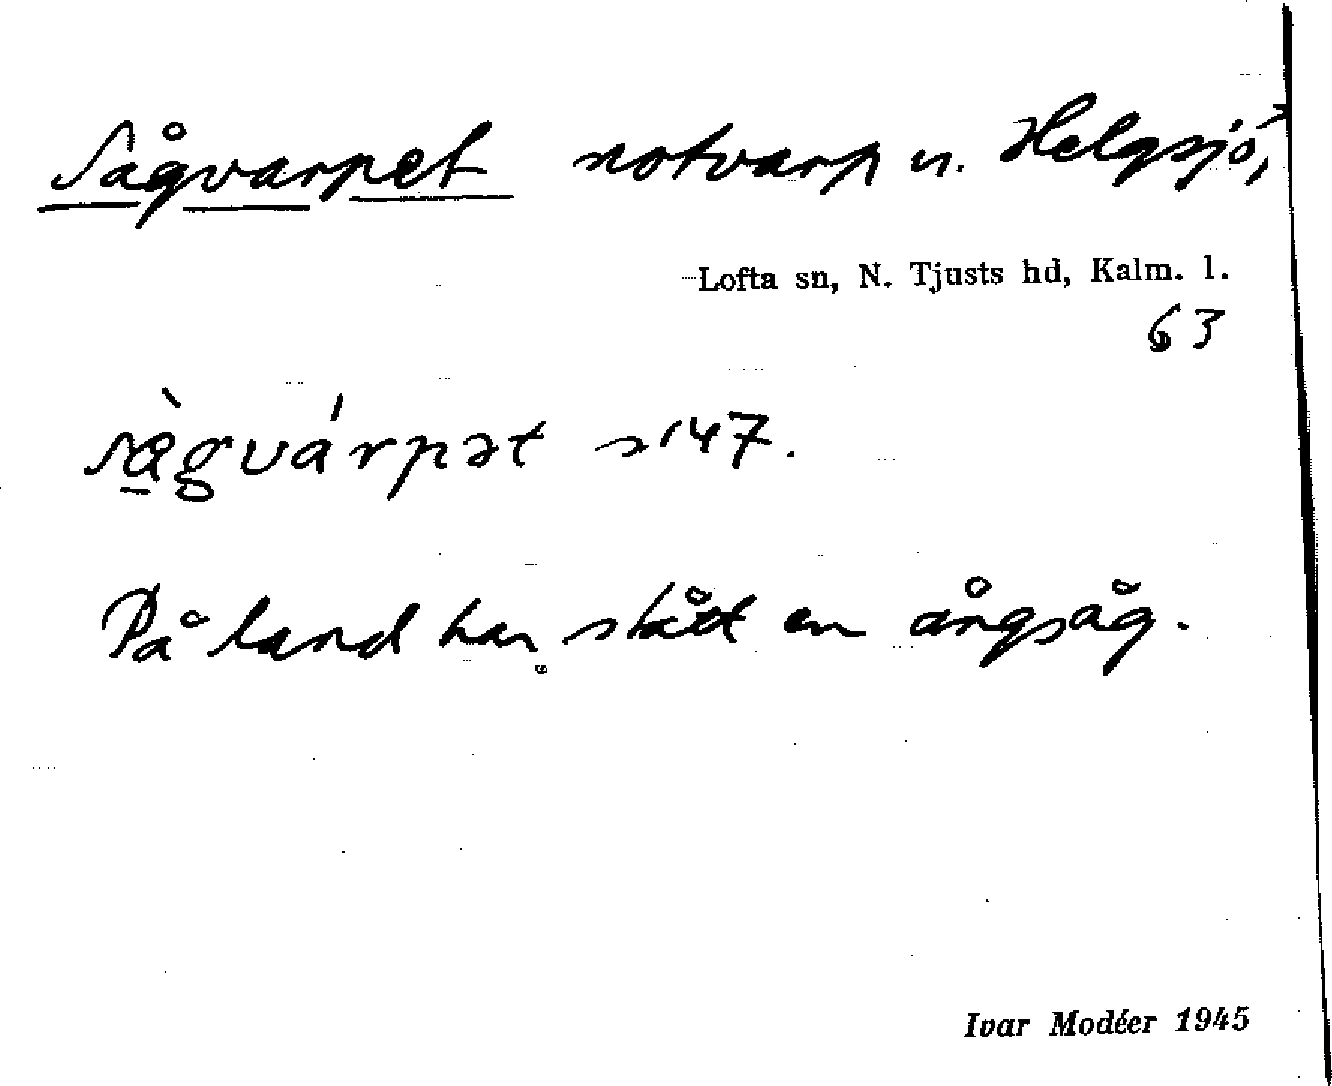 Sågvarpet notvarp u. Helgsjö,
Lofta sn, N. Tjusts hd, Kalm. l.
63
sàgvárpət s/47.
På land har stått en ångsåg.
Ivar Modéer 1945